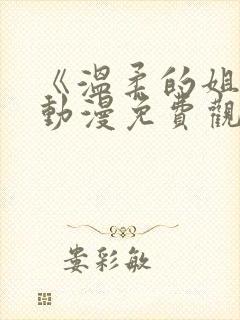 《溫柔的姐
動漫免費觀
婁彩敏